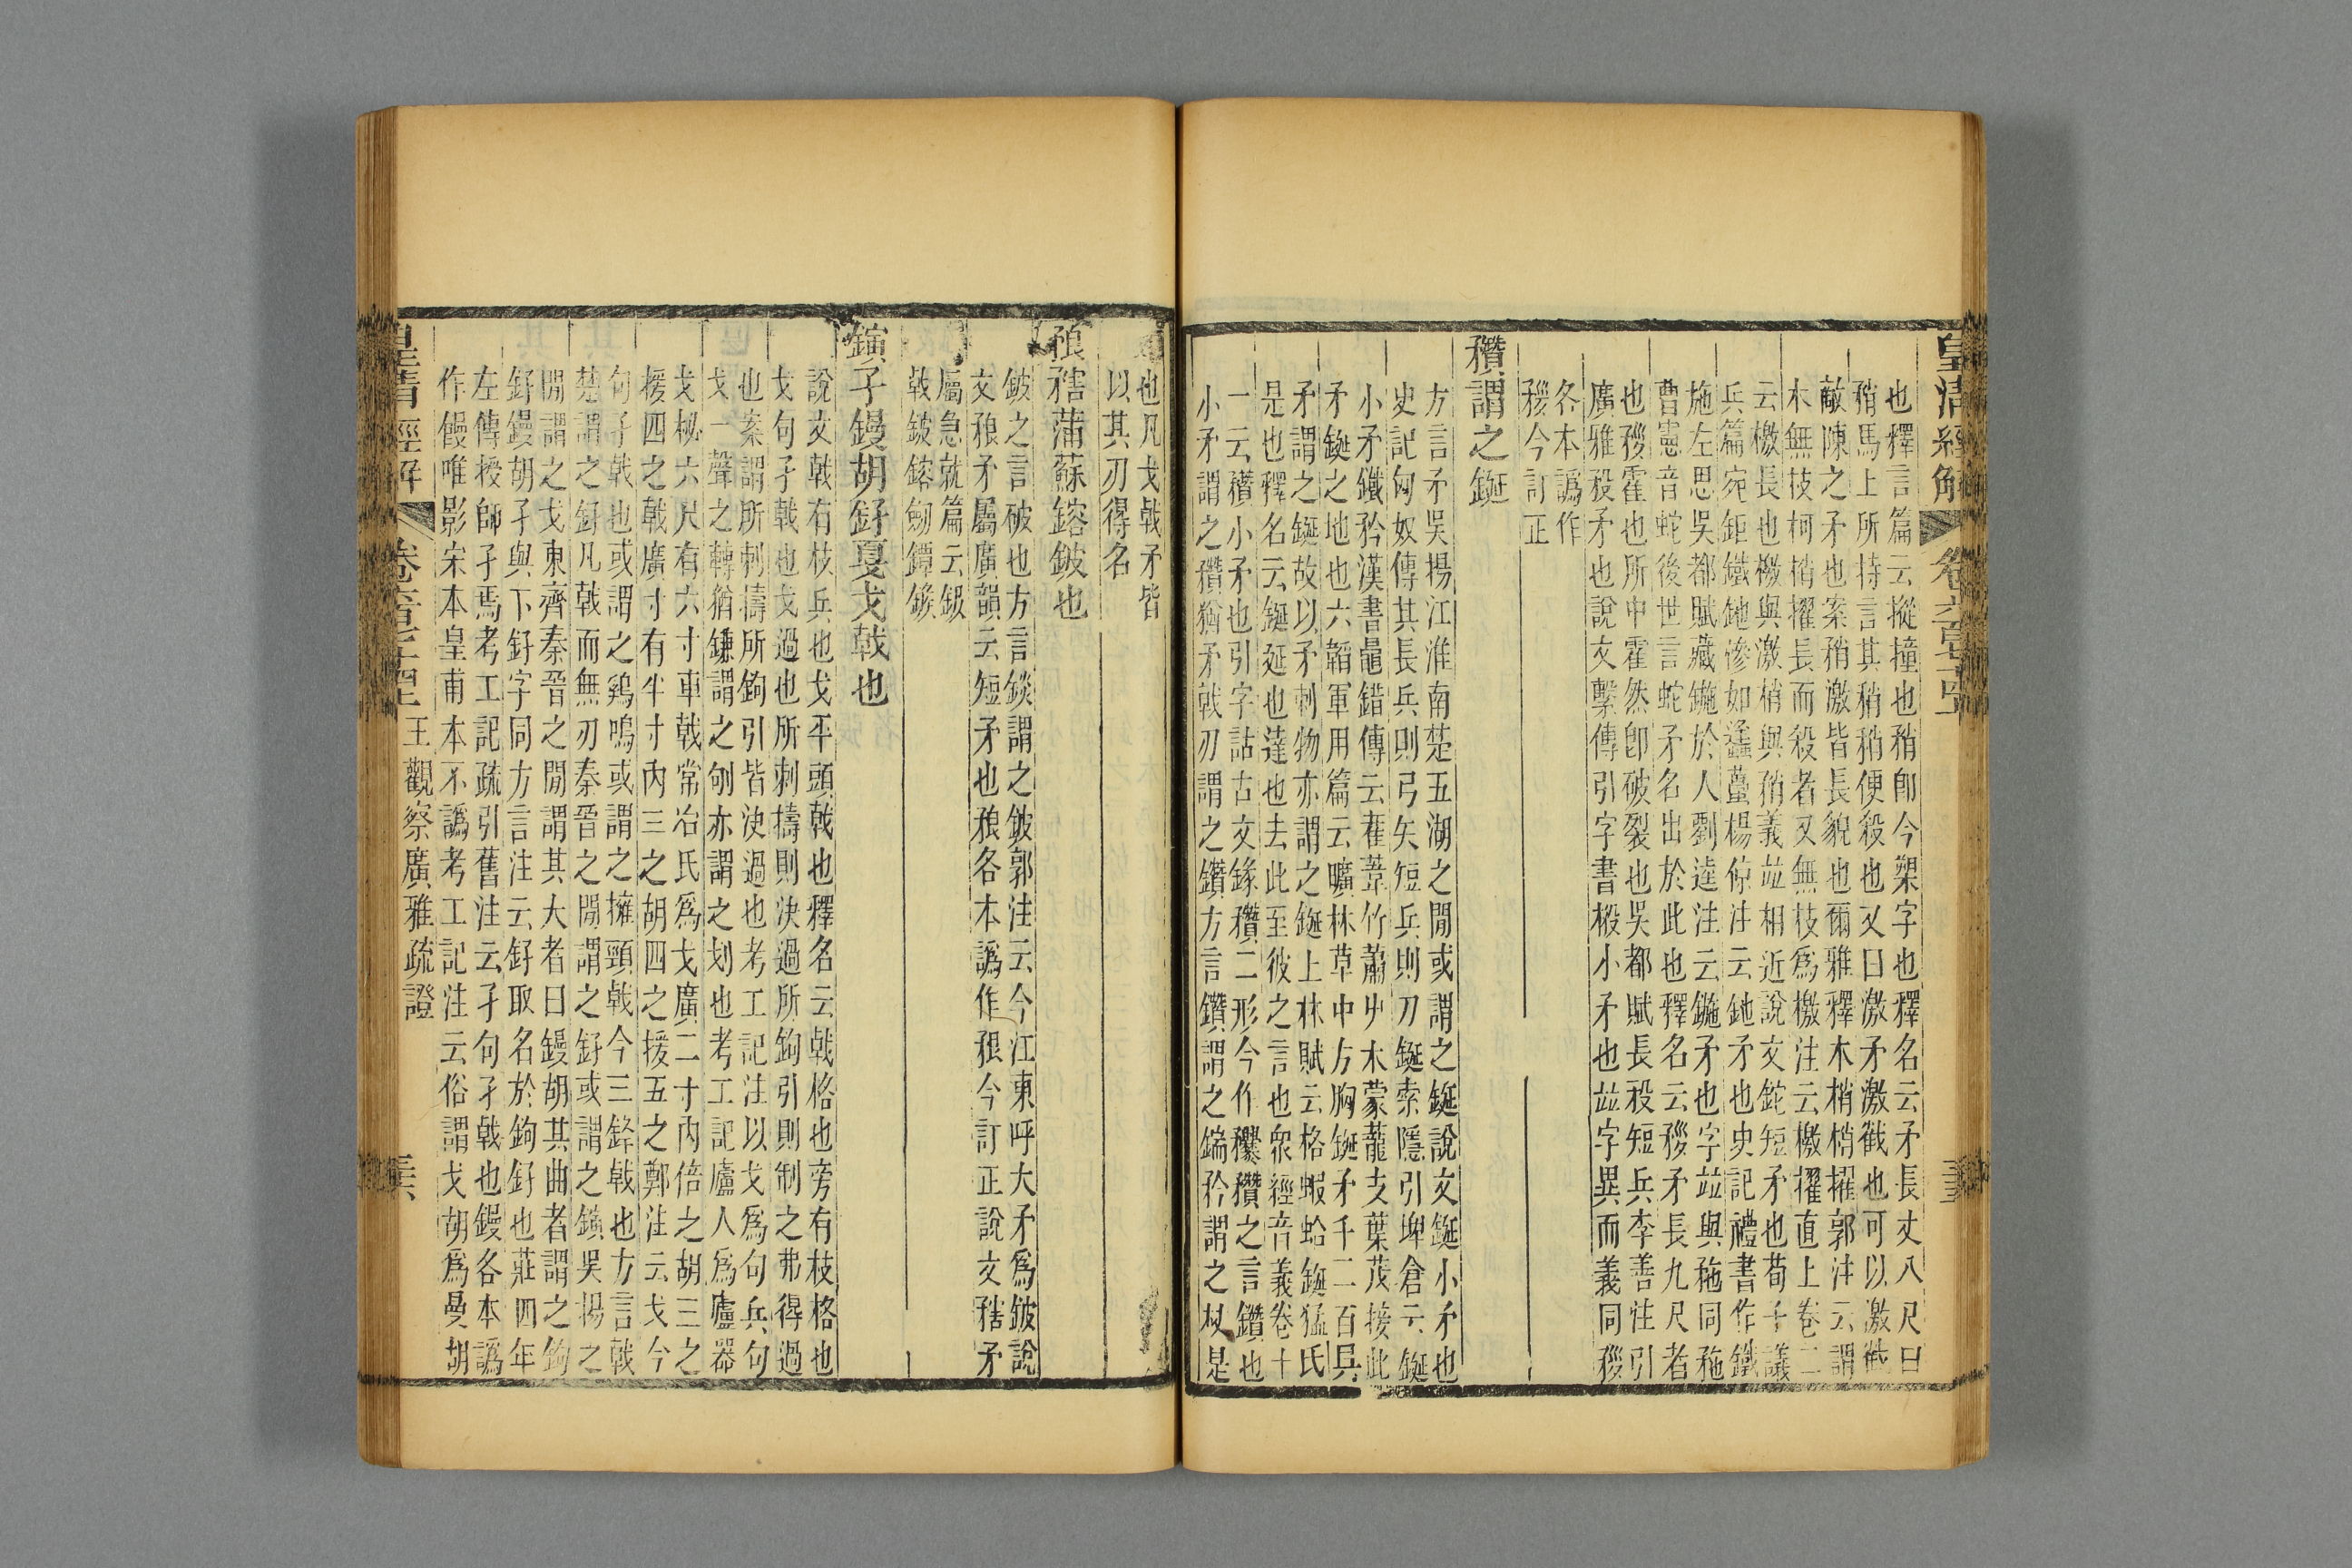 皇清經解 卷六百七十四
也釋言篇云摐撞也矟卽今槊字也釋名云矛長丈八尺曰
矟馬上所持言其矟矟便殺也又曰激矛激截也可以激截
敵陳之矛也案矟激皆長貌也爾雅釋木梢梢擢郭注云謂
木無枝柯梢擢長而殺者又無枝爲檄注云檄擢直上卷二
云檄長也檄與激梢與矟義竝相近說文鉈短矛也荀子議
兵篇宛鉅鐵釶慘如蠭蠆楊倞注云釶矛也史記禮書作鐵
施左思吳都賦藏鍦於人劉逵注云鍦矛也字竝與䂠同䂠
曹憲音蛇後世言蛇矛名出於此也釋名云矛長九尺者
也𥍢霍也所中霍然卽破裂也吳都賦長殳短兵李善注引
廣雅殳矛也說文繫傳引字書 小矛也竝字異而義同
各本譌作
今訂正
謂之鋋
方言矛吳揚江淮南楚五湖之閒或謂之鋋說文鋋小矛也
史記匈奴傳其長兵則弓矢短兵則刀鋋索隱引埤倉云鋋
小矛鐵矜漢書鼂錯傳云萑葦竹蕭屮木蒙蘢支葉茂接此
矛鋋之地也六韜軍用篇云曠林草中方胸鋋矛千二百具
矛謂之鋋故以矛刺物亦謂之鋋上林賦云格蝦蛤鋋猛氏
是也釋名云鋋延也達也去此至彼之言也衆經音義卷十
一云穳小矛也引字詁古文錄穳二形今作 穳之言鑽也
小矛謂之穳猶矛戟刃謂之鑽方言鑽謂之鍴矜謂之杖是
也凡戈戟矛皆
以其刃得名
矠蒲蘇鎔鈹也
鈹之言破也方言錟謂之鈹郭注云今江東呼大矛爲鈹說
文䂍矛屬廣韻云短矛也䂍各本譌作 今訂正說文矠矛
屬急就篇云鈒
戟鈹鎔劒鐔鍭
鏔孑鏝胡釨戛戈戟也
說文戟有枝兵也戈平頭戟也釋名云戟格也旁有枝格也
戈句孑戟也戈過也所刺擣則決過所鉤引則制之弗得過
也案謂所刺擣所鉤引皆決過也考工記注以戈爲句兵句
戈一聲之轉猶鎌謂之刎亦謂之划也考工記廬人爲廬器
戈柲六尺有六寸車戟常冶氏爲戈廣二寸內倍之胡三之
援四之戟廣寸有半寸內三之胡四之援五之鄭注云戈今
句孑戟也或謂之鷄鳴或謂之擁頸戟今三鋒戟也方言戟
楚謂之釨凡戟而無刃秦晉之閒謂之釨或謂之鏔吳揚之
閒謂之戈東齊秦晉之閒謂其大者曰鏝胡其曲者謂之鉤
釨鏝胡孑與下釨字同方言注云釨取名於鉤釨也莊四年
左傳授師孑焉考工記疏引舊注云孑句孑戟也鏝各本譌
作饅唯影宋本皇甫本不譌考工記注云俗謂戈胡爲曼胡
皇清經解 卷六百七十四上 王觀察廣雅疏證 三六